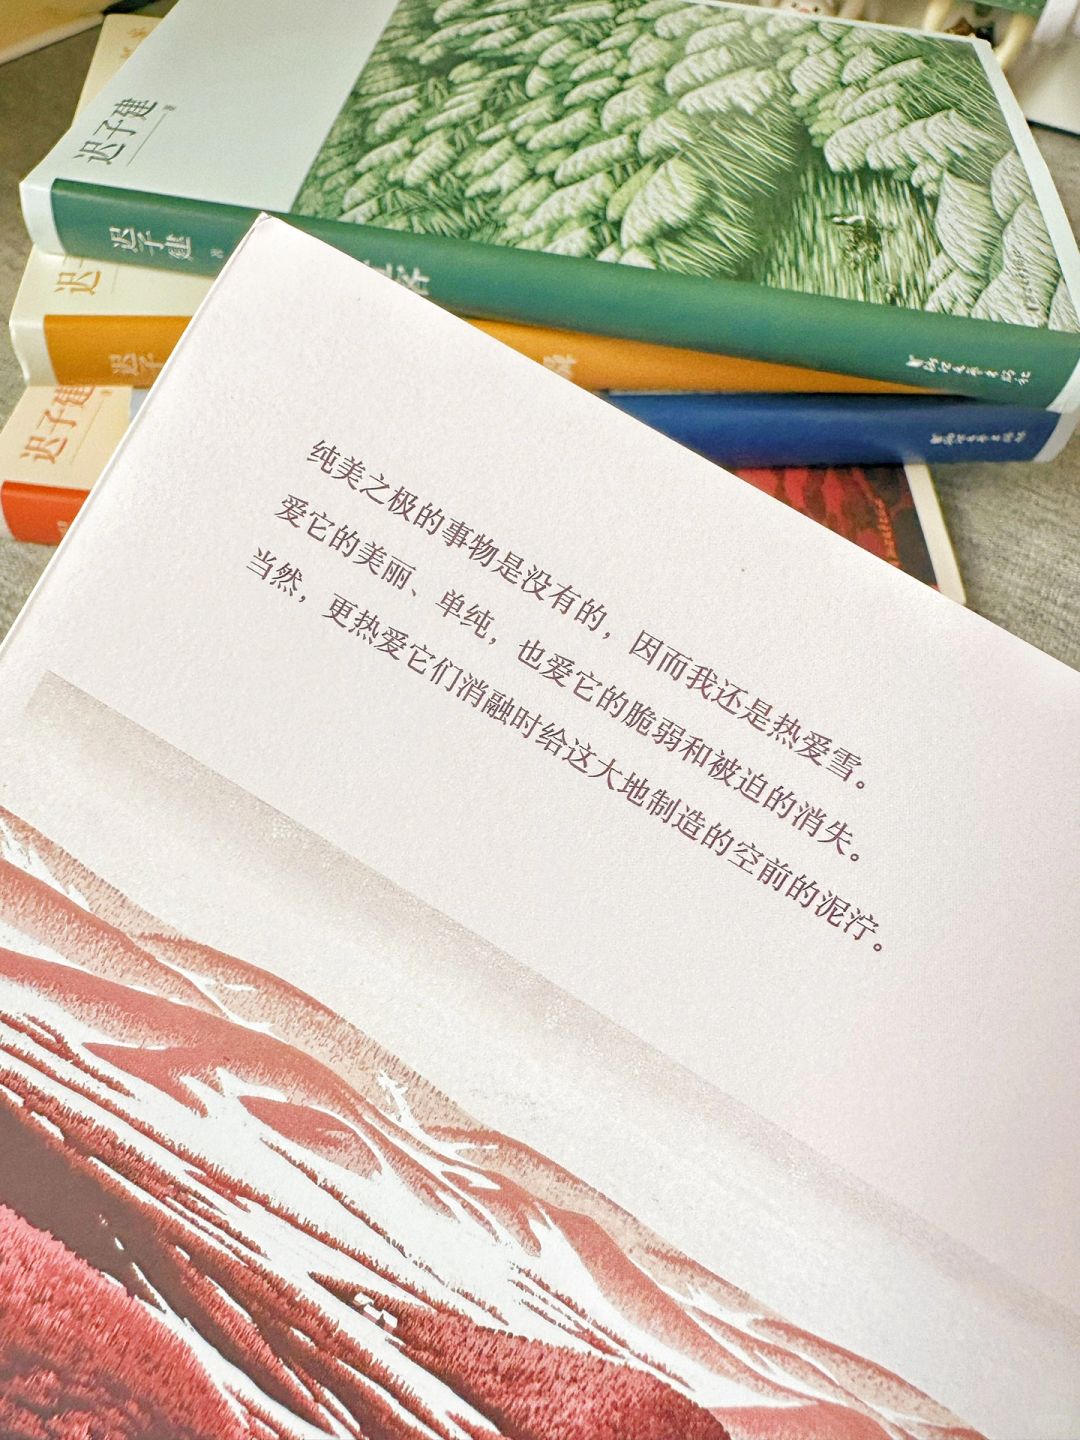 迟子建
著
迟子建
著
迟子建
迟子
迟子建
纯美之极的事物是没有的，因而我还是热爱雪。
爱它的美丽、单纯，也爱它的脆弱和被迫的消失。
当然，更热爱它们消融时给这大地制造的空前的泥泞。